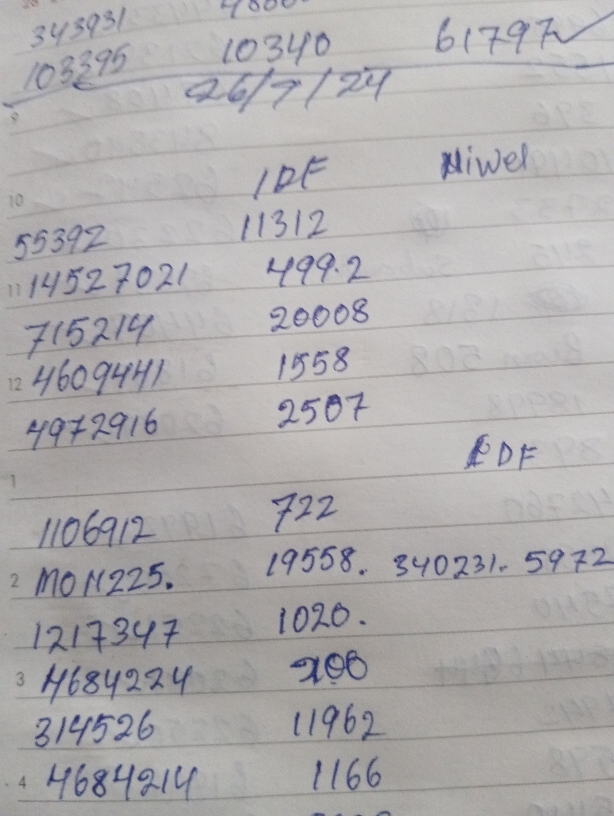 343931
103395 10340 61797✓
26/7/24
9
10 IDF Niwel
55392 11312
11 14527021 499.2
715214 20008
12 4609441 1558
4972916 2507
1 PDF
1106912 722
2 MON225. 19558. 340231. 5972
1217347 1020.
3 4684224 200
314526 11962
4 4684214 1166